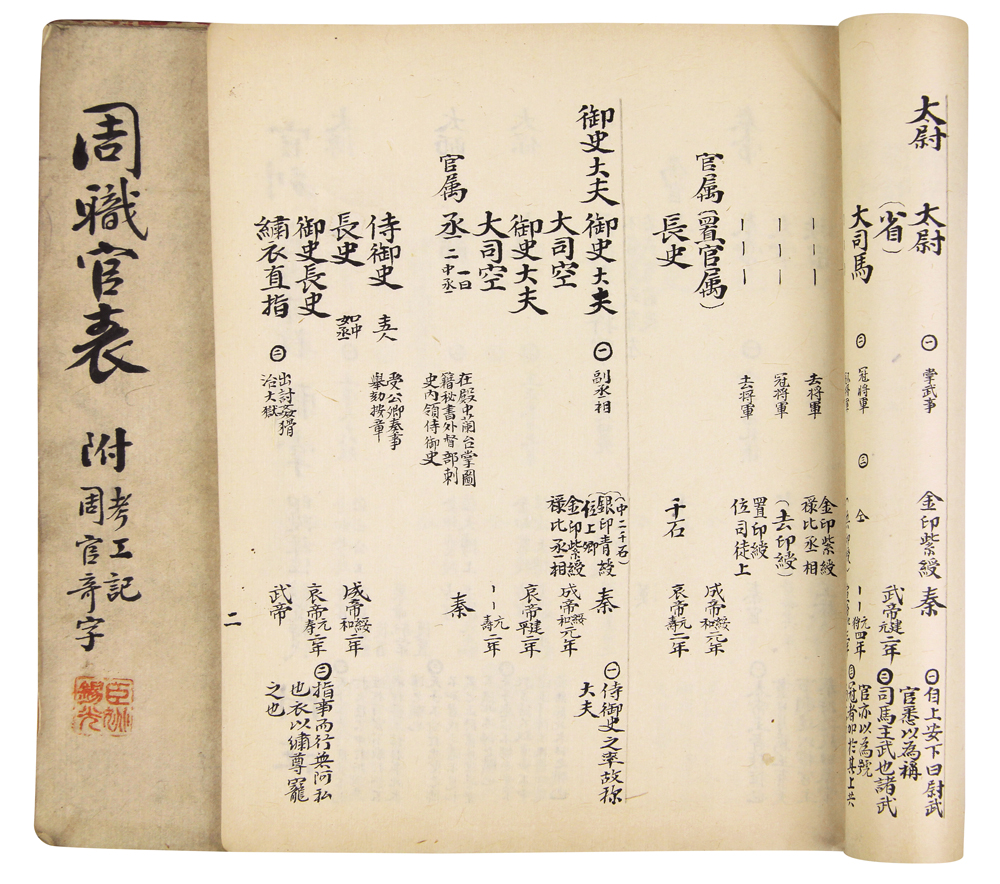 周職官表
附
考工記
周官奇字
太尉
太尉
㊀掌武事
金印紫綬
秦
㊀自上安下曰尉武
官悉以為稱
(省)
武帝建元二年
㊁司馬主武也諸武
官亦以為號
大司馬
㊁冠將軍
㊂仝
元狩四年
㊂冠者加於其上共
去將軍
金印紫綬
祿比丞相
冠將軍
(去印綬)
去將軍
置印綬
位司徒上
官属(置官属)
成帝綏和元年
長史
千石
哀帝元壽二年
御史大夫
御史大夫
㊀副丞相
(中二千石)
(銀印青綬
位上卿
秦
㊀侍御史之率故称
大夫
大司空
金印紫綬
祿比丞相
成帝綏和元年
御史大夫
哀帝建平二年
大司空
元壽二年
官属
丞二一曰中丞
在殿中蘭台掌圖
籍秘書外督部刺
史內領侍御史
秦
侍御史
十五人
受公卿奏事
舉劾按章
長史
如中丞
成帝綏和二年
御史長史
哀帝元壽二年
㊂指事而行無阿私
也衣以繡尊寵
之也
繡衣直指
㊂出討姦猾
治大獄
武帝
二